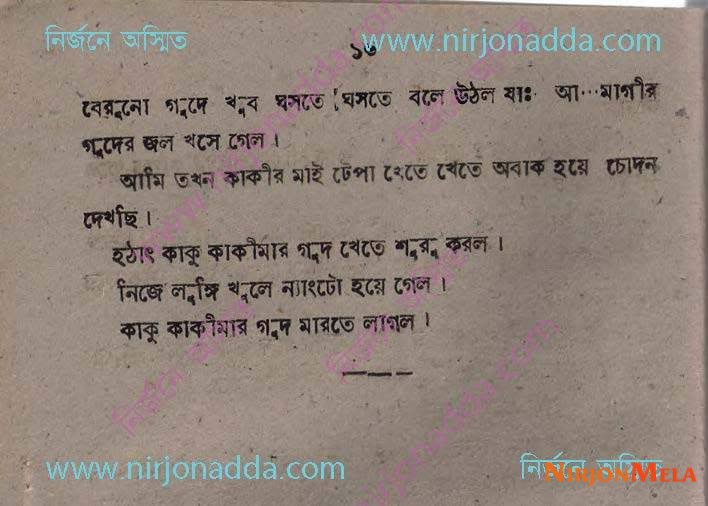 নির্জনে অস্মিত www.nirjonadda.com
১৬
বেরুনো গুদে খুব ঘসতে ঘসতে বলে উঠল যাঃ আ...মাগীর
গুদের জল খসে গেল।
আমি তখন কাকীর মাই টেপা খেতে খেতে অবাক হয়ে চোদন
দেখছি।
হঠাৎ কাকু কাকীমার গুদ খেতে শুরু করল।
নিজে লুঙ্গি খুলে ন্যাংটো হয়ে গেল।
কাকু কাকীমার গুদ মারতে লাগল।
www.nirjonadda.com নির্জনে অস্মিত
NIRJONMELA